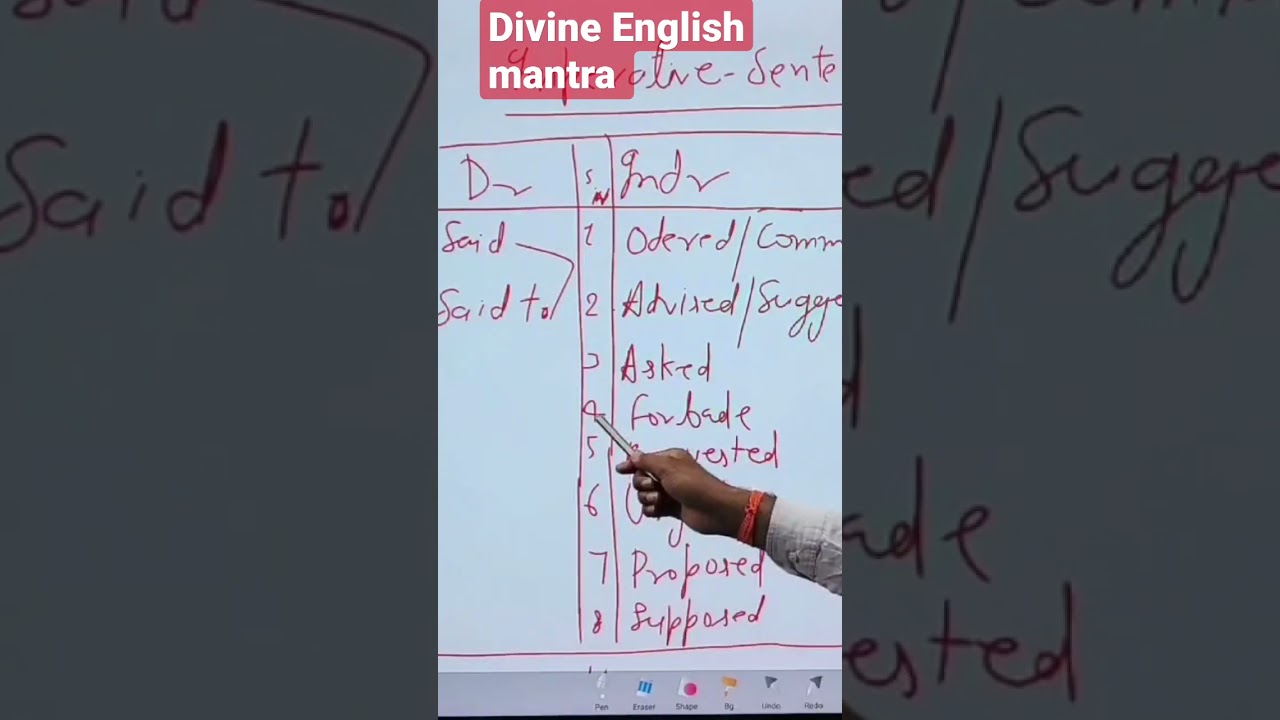 Divine English
mantra
Imperative-Sente
Dr S.N Indr
Said 1 Odered/Comm
Said to 2 Advised/Sugge
3 Asked
4 Forbade
5
6
7 Proposed
8 Supposed
Pen Eraser Shape Bg Undo Redo